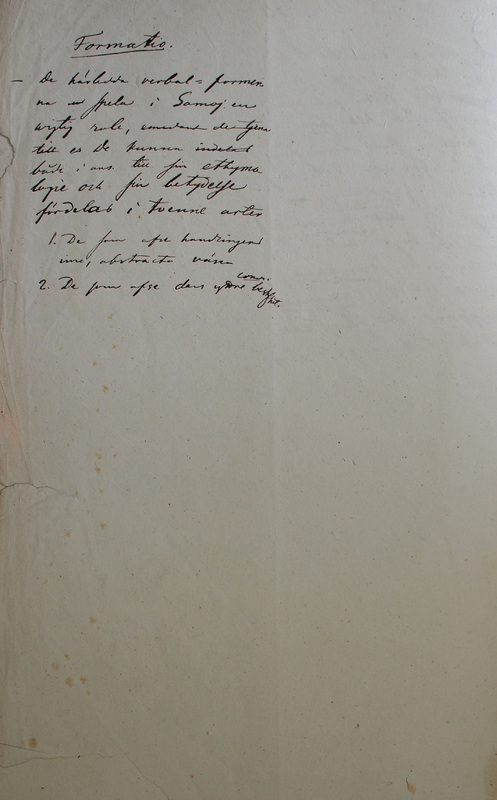 Formatio.
— De härledda verbal-formen
na spela i Samoj en
wigtig role, emedan de tjena
till es De kunna indelas
både i ans. till sin ethymo
logie och sin betydelse
fördelas i tvenne arter
1. De som afse handlingens
inre, abstracta väsen
2. De som afse dess yttre